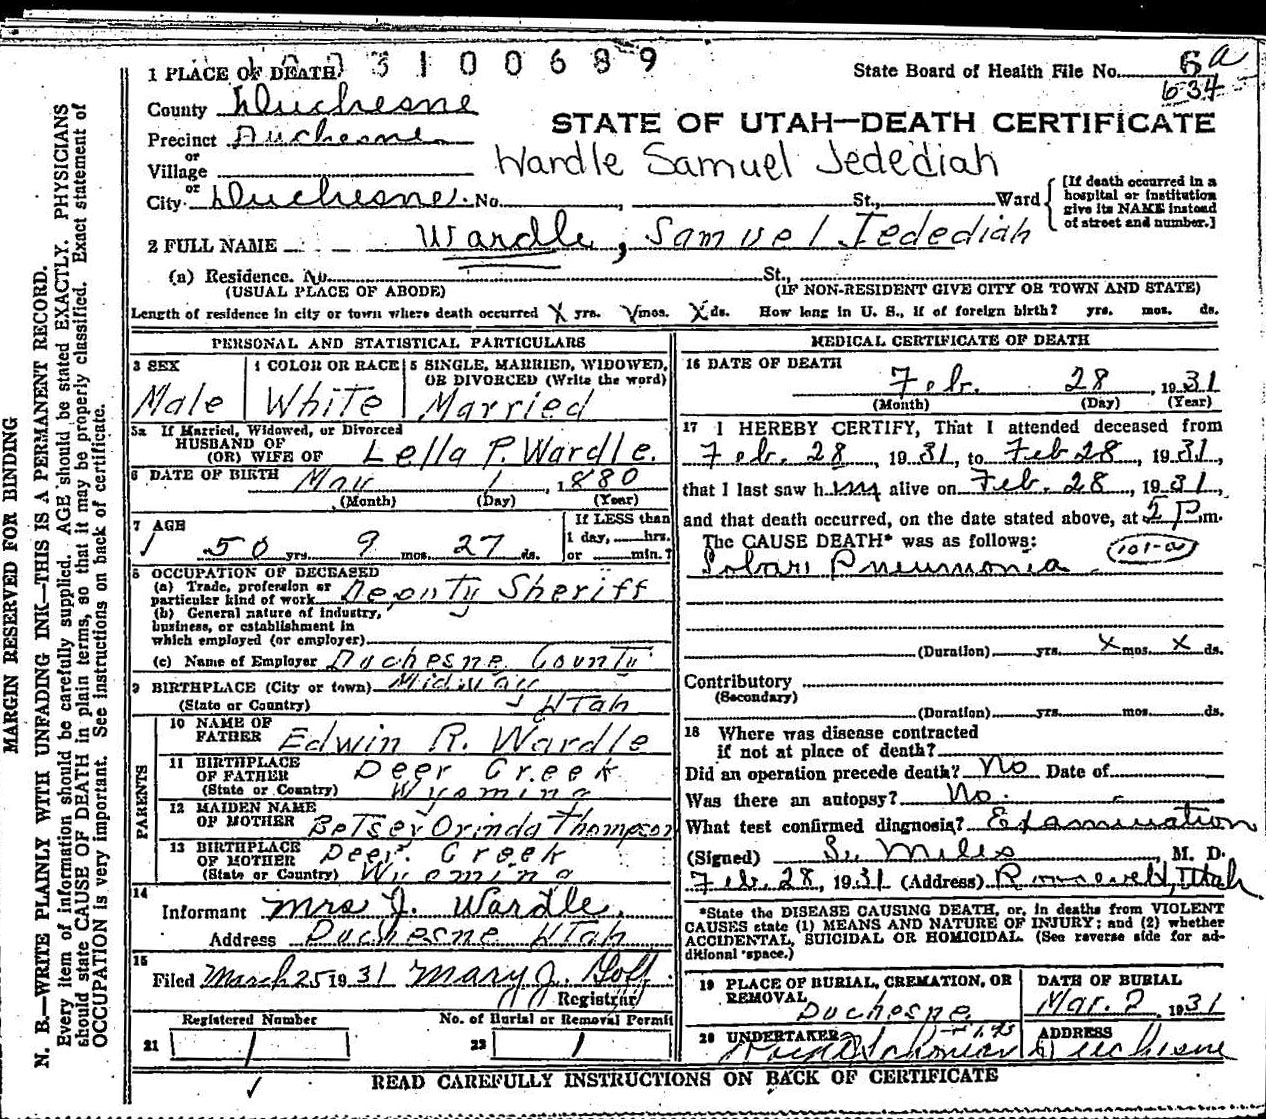 1 PLACE OF DEATH 3 1 0 0 6 8 9
State Board of Health File No. 6 a
634
County Duchesne
STATE OF UTAH—DEATH CERTIFICATE
Precinct Duchesne
or
Village
Wardle Samuel Jedediah
or
City Duchesne. No. , St., Ward
[If death occurred in a hospital or institution give its NAME instead of street and number.]
2 FULL NAME Wardle, Samuel Jedediah
(a) Residence. No. St.,
(USUAL PLACE OF ABODE) (IF NON-RESIDENT GIVE CITY OR TOWN AND STATE)
Length of residence in city or town where death occurred X yrs. mos. X ds. How long in U. S., if of foreign birth? yrs. mos. ds.
PERSONAL AND STATISTICAL PARTICULARS
3 SEX
Male
4 COLOR OR RACE
White
5 SINGLE, MARRIED, WIDOWED,
OR DIVORCED (Write the word)
Married
5a If Married, Widowed, or Divorced
HUSBAND OF
(OR) WIFE OF Lella P. Wardle.
6 DATE OF BIRTH May 1, 1880
(Month) (Day) (Year)
7 AGE
50 yrs. 9 mos. 27 ds.
If LESS than
1 day, hrs.
or min.?
8 OCCUPATION OF DECEASED
(a) Trade, profession or
particular kind of work Deputy Sheriff
(b) General nature of industry,
business, or establishment in
which employed (or employer)
(c) Name of Employer Duchesne County
9 BIRTHPLACE (City or town) Midway
(State or Country) Utah
PARENTS
10 NAME OF
FATHER Edwin R. Wardle
11 BIRTHPLACE
OF FATHER Deer Creek
(State or Country) Wyoming
12 MAIDEN NAME
OF MOTHER Betsey Orinda Thompson
13 BIRTHPLACE
OF MOTHER Deer Creek
(State or Country) Wyoming
14
Informant Mrs J. Wardle
Address Duchesne Utah
15
Filed March 25 1931 Mary J. Goff
Registrar
Registered Number No. of Burial or Removal Permit
21 1 22 1
MEDICAL CERTIFICATE OF DEATH
16 DATE OF DEATH
Feb. 28, 1931
(Month) (Day) (Year)
17 I HEREBY CERTIFY, That I attended deceased from
Feb. 28, 1931, to Feb 28, 1931,
that I last saw him alive on Feb. 28, 1931,
and that death occurred, on the date stated above, at 5 P.m.
The CAUSE DEATH* was as follows: 101-a
Lobar Pneumonia
(Duration) yrs. X mos. X ds.
Contributory
(Secondary)
(Duration) yrs. mos. ds.
18 Where was disease contracted
if not at place of death?
Did an operation precede death? No Date of
Was there an autopsy? No.
What test confirmed diagnosis? Examination
(Signed) Miles, M. D.
Feb. 28, 1931 (Address) Roosevelt, Utah
*State the DISEASE CAUSING DEATH, or, in deaths from VIOLENT
CAUSES state (1) MEANS AND NATURE OF INJURY; and (2) whether
ACCIDENTAL, SUICIDAL OR HOMICIDAL. (See reverse side for ad-
ditional space.)
19 PLACE OF BURIAL, CREMATION, OR
REMOVAL Duchesne
DATE OF BURIAL
Mar. 2 1931
20 UNDERTAKER
ADDRESS
Duchesne
READ CAREFULLY INSTRUCTIONS ON BACK OF CERTIFICATE
MARGIN RESERVED FOR BINDING
N. B.—WRITE PLAINLY WITH UNFADING INK—THIS IS A PERMANENT RECORD.
Every item of information should be carefully supplied. AGE should be stated EXACTLY. PHYSICIANS
should state CAUSE OF DEATH in plain terms, so that it may be properly classified. Exact statement of
OCCUPATION is very important. See instructions on back of certificate.